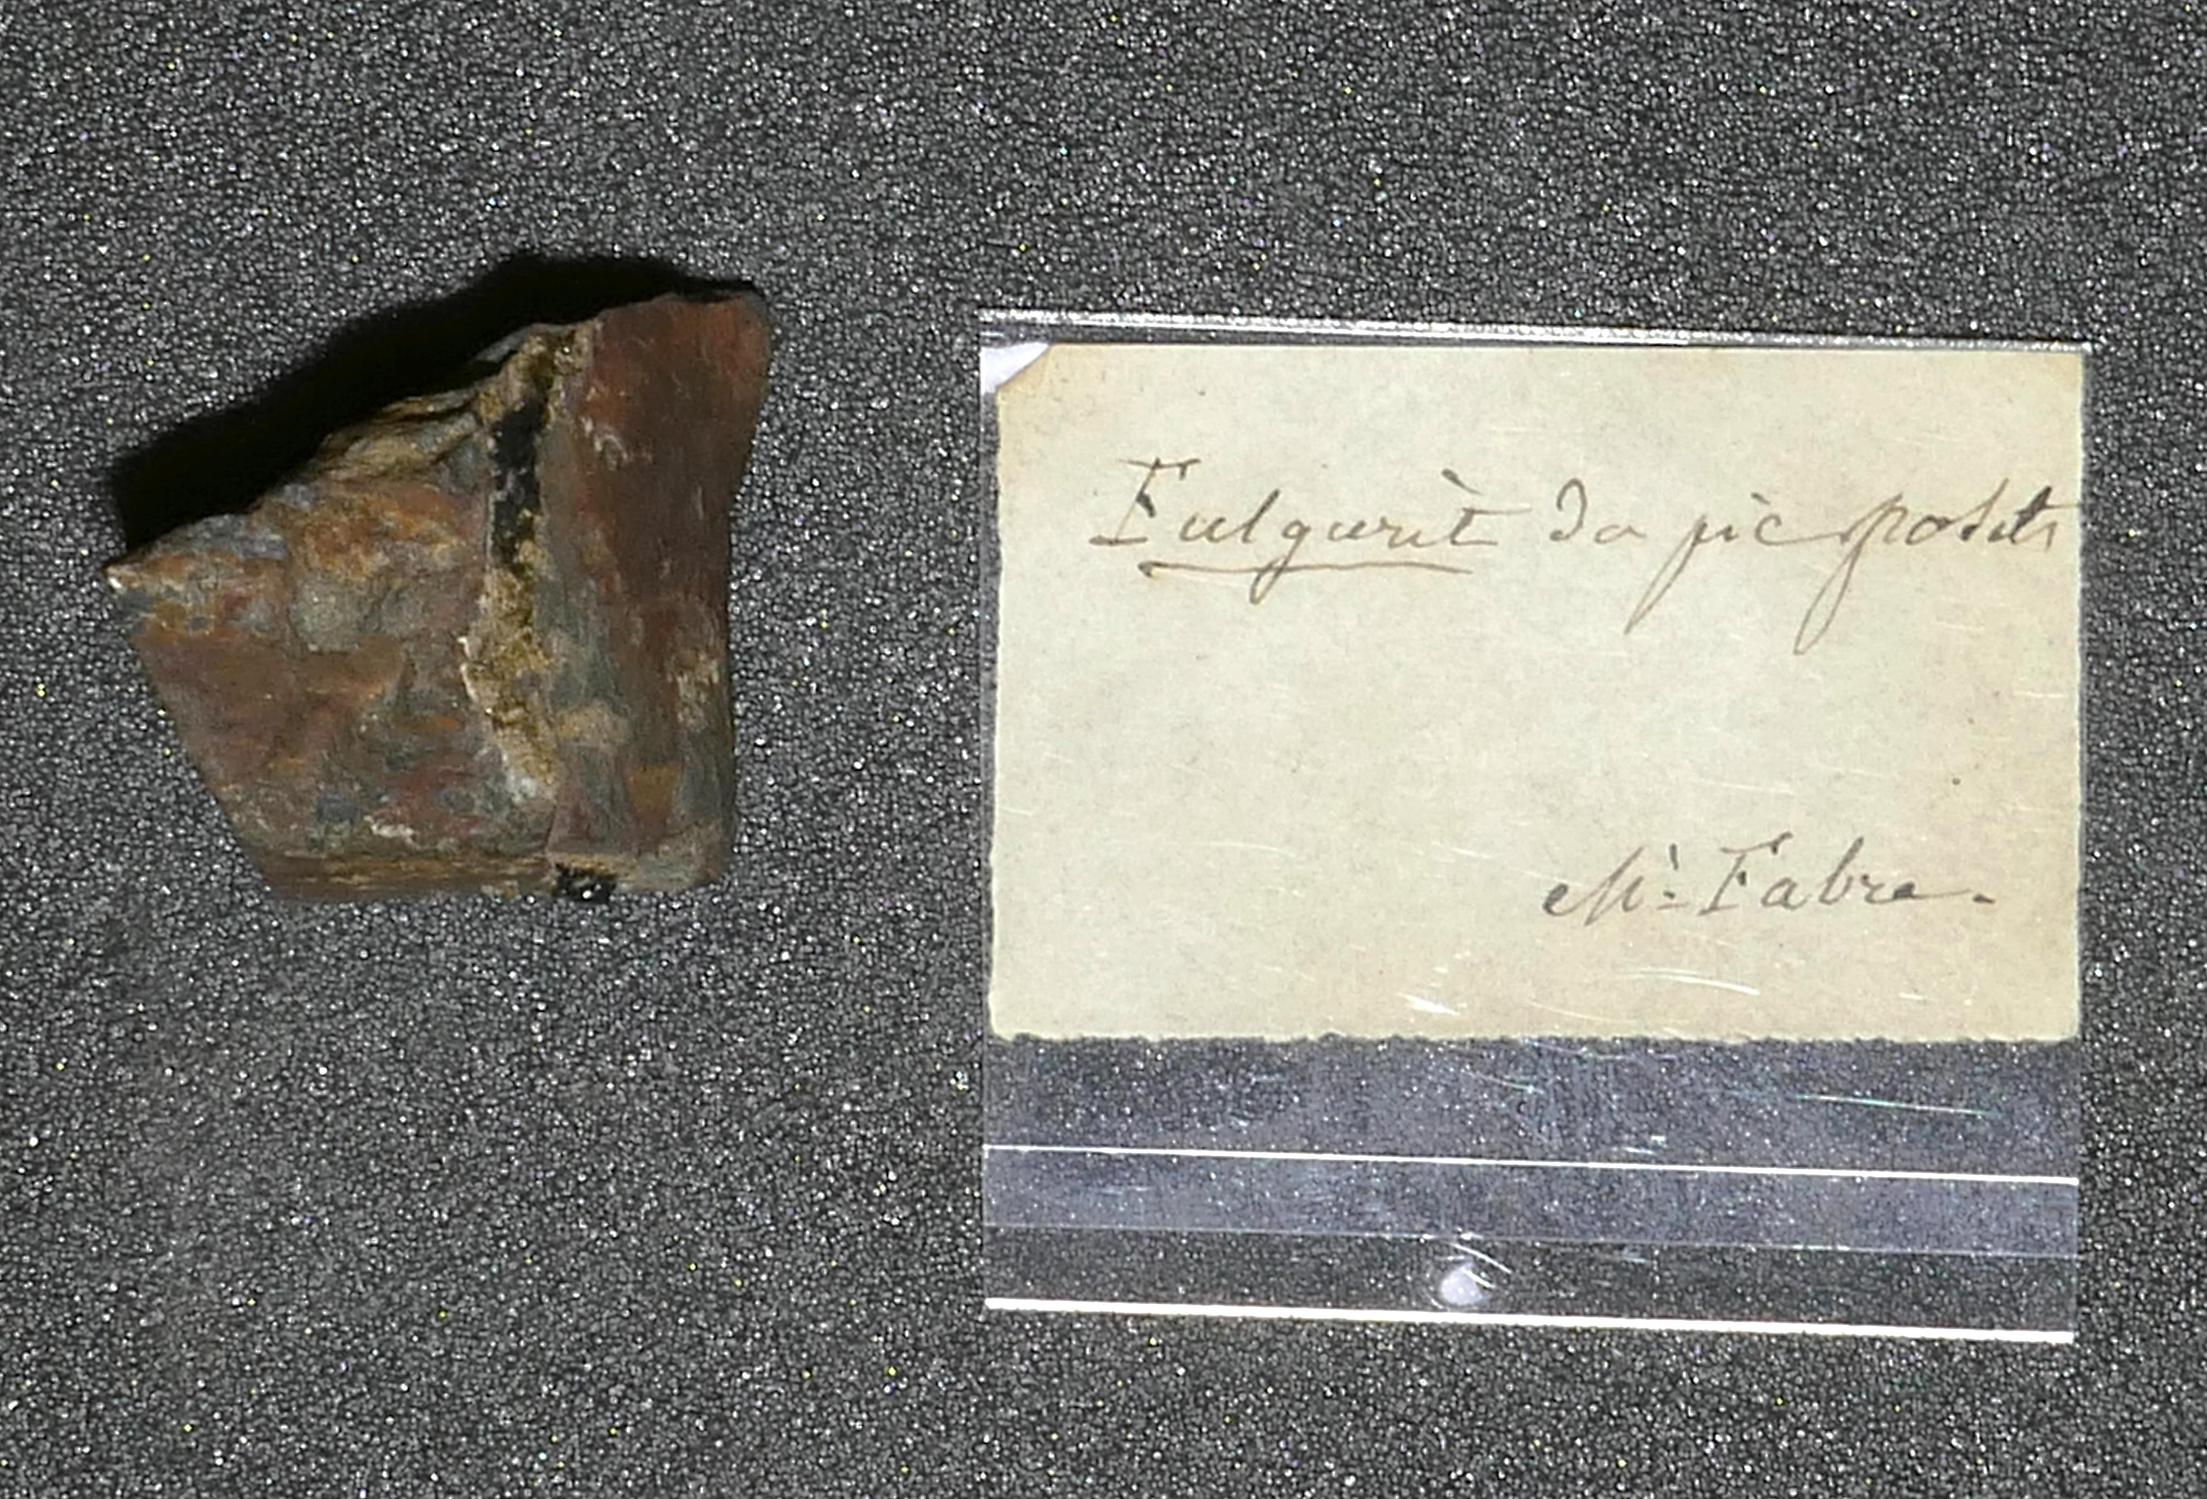 Fulgurit du pic posets
Mr. Fabre.